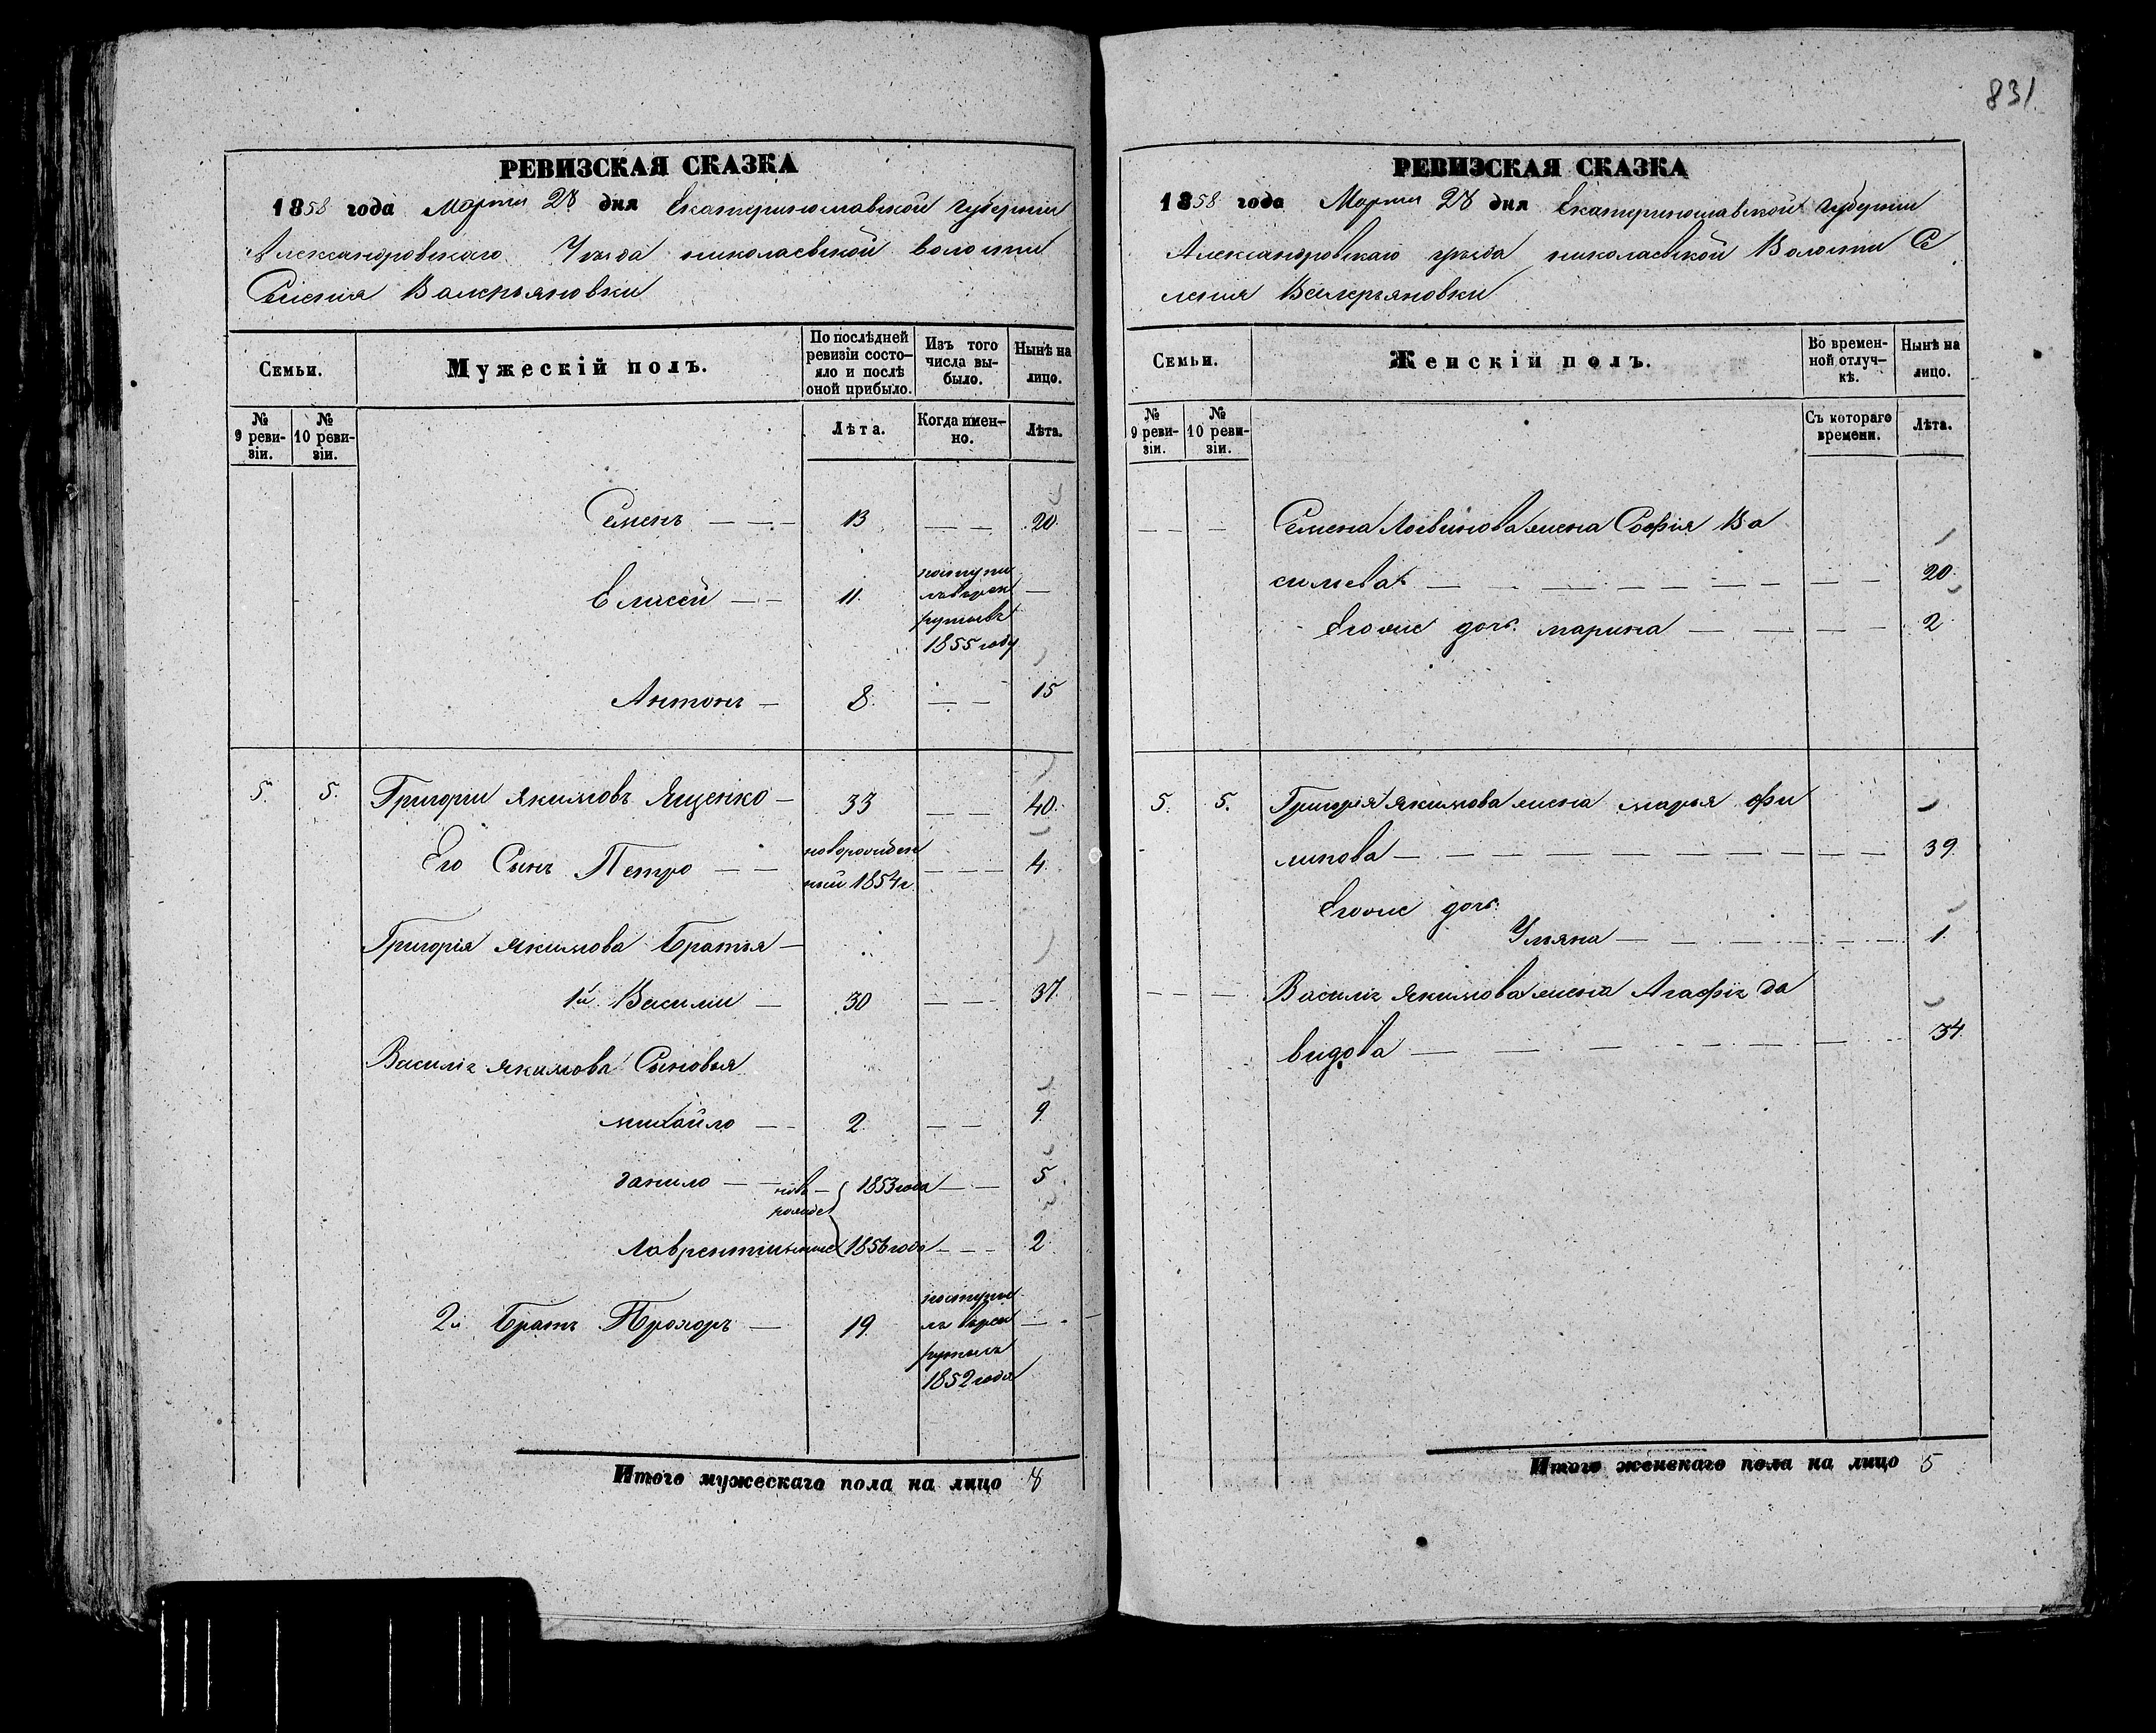 831
РЕВИЗСКАЯ СКАЗКА
1858 года Марта 28 дня Екатеринославской губернии
Александровскаго Уезда николаевской волости
Селения Валерьяновки
Семьи.
Мужескій полъ.
По послѣдней ревизіи состо-яло и послѣ оной прибыло.
Изъ того числа вы-было.
Нынѣ на лицо.
№ 9 реви-зіи.
№ 10 реви-зіи.
Лѣта.
Когда имен-но.
Лѣта.
Семенъ — 13 — 20.
Елисей — 11. поступи
лъ врек
руты въ
1855 году —
Антонъ — 8. — 15
5. 5. Григории Якимовъ Ященко — 33 — 40.
Его Сынъ Петро — новорожден
ный 1854 г. — 4.
Григорія Якимова Братья —
1й Василии — 30 — 37.
Василія Якимова Сыновья
михайло — 2. — 9.
данило — ново- рожде 1853 года — 5
Лаврентии нные 1856 года — 2
2й Братъ Прохоръ — 19. поступи
лъ врек
руты въ
1852 года —
Итого мужескаго пола на лицо 8
РЕВИЗСКАЯ СКАЗКА
1858 года Марта 28 дня Екатеринославской губернии
Александровскаго уезда николаевской Волости Се
ления Валерьяновки
Семьи.
Женскій полъ.
Во времен-ной отлуч-кѣ.
Нынѣ на лицо.
№ 9 реви-зіи.
№ 10 реви-зіи.
Съ котораго времени.
Лѣта.
Семена Логвинова жена Софія Ва
силева — 20.
Егоже дочь марина — 2
5. 5. Григорія Якимова жена марья фи
липова — 39.
Егоже дочь
Ульяна — 1.
Василія Якимова жена Агафія да
видова — 34.
Итого женскаго пола на лицо 5